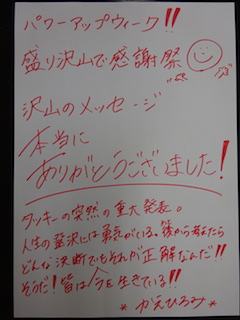 パワーアップウィーク!!
盛り沢山で感謝祭
沢山のメッセージ
本当に
ありがとうございました!
タッキーの突然の重大発表。
人生の選択には勇気がいる。後から考えたら
どんな決断でもそれが正解なんだ!!
そうだ!皆は今を生きている!!
*かえひろみ*